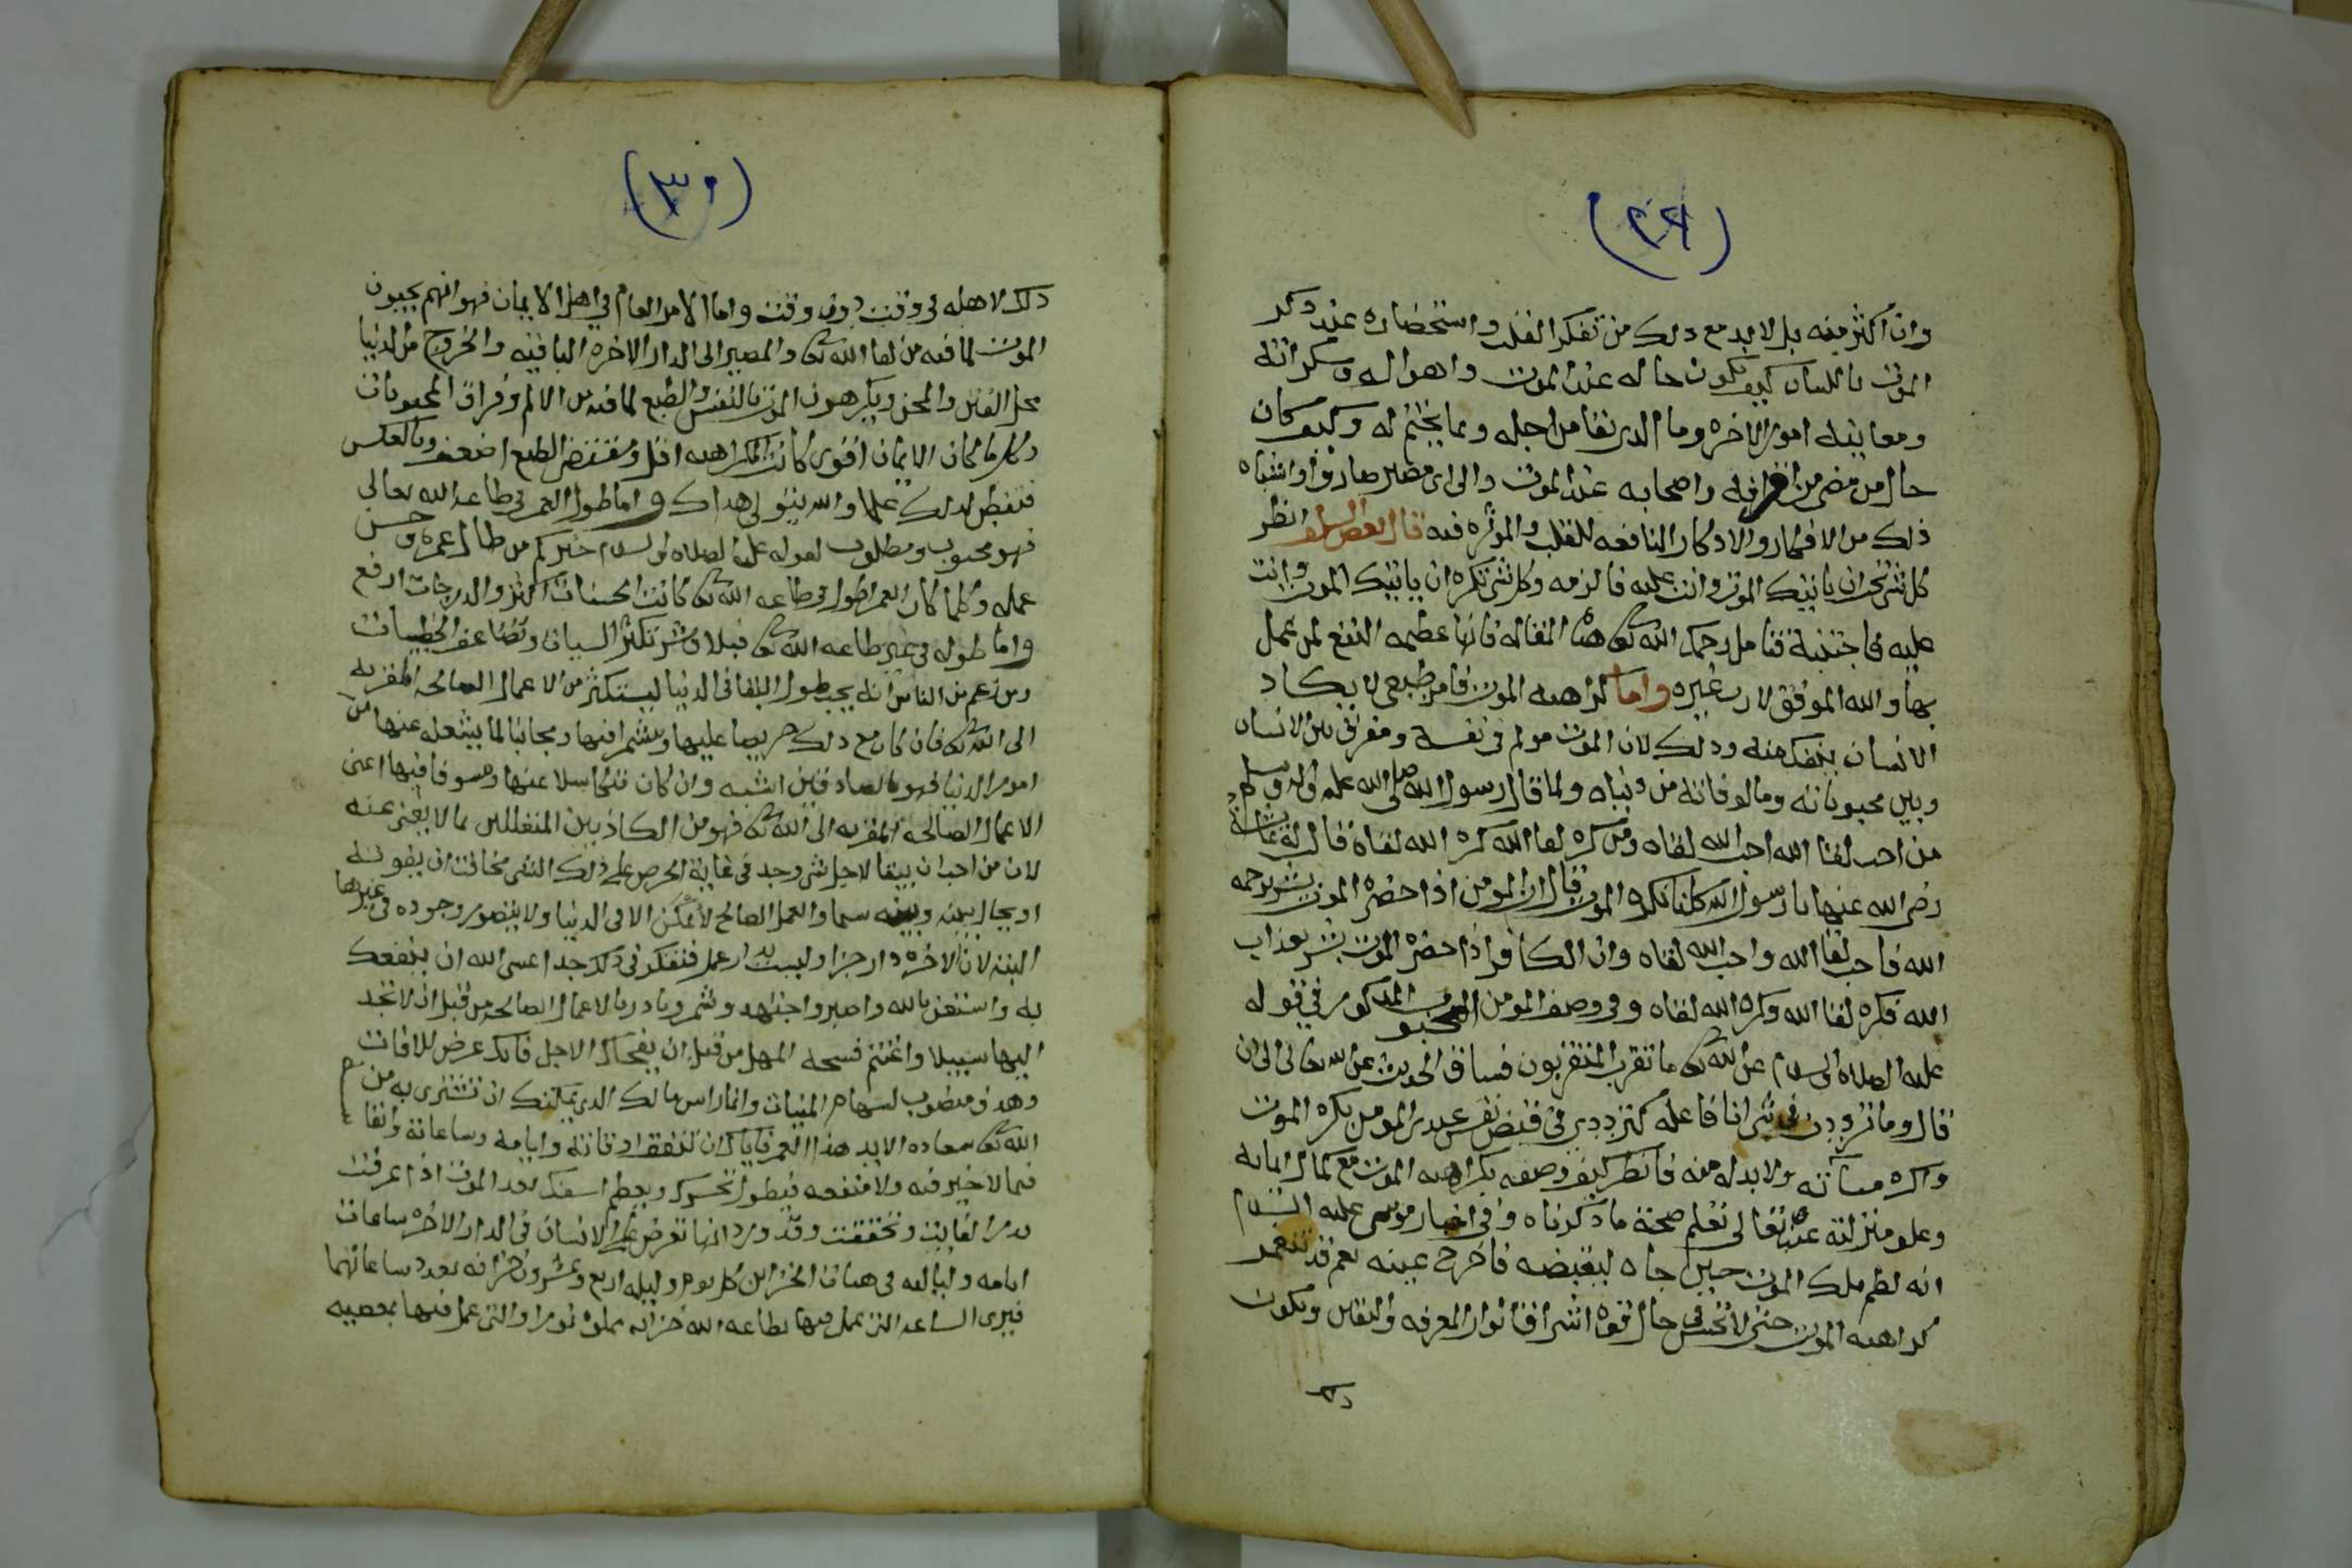 (٢٩)
وان اكثر منه بل لابد مع ذلك من تفكر القلب واستحضاره عند ذكر
الموت باللسان كيف يكون حاله عند الموت واهواله وسكراته
ومعاينة امور الاخره وما الذي بقا من اجله وبما يختم له وكيف كان
حال من مضى من اقرانه واصحابه عند الموت والى اي مصير صاروا واشباه
ذلك من الافكار والاذكار النافعه للقلب والموثره فيه قال بعض السلف انظر
كل شي تحب ان ياتيك الموت وانت عليه فالزمه وكل شي تكره ان ياتيك الموت وانت
عليه فاجتنبه فتامل رحمك الله تعالى هذه المقاله فانها عظيمه النفع لمن عمل
بها والله الموفق لا رب غيره واما كراهيه الموت فامر طبعي لا يكاد
الانسان ينفك منه وذلك لان الموت مولم في نفسه ومفرق بين الانسان
وبين محبوباته ومالوفاته من دنياه ولما قال رسول الله صلى الله عليه واله وسلم
من احب لقا الله احب الله لقاه ومن كره لقا الله كره الله لقاه قالت له عائشة
رضي الله عنها يا رسول الله كلنا نكره الموت قال ان المومن اذا حضره الموت بشر برحمه
الله فاحب لقا الله واحب الله لقاه وان الكافر اذا حضره الموت بشر بعذاب
الله فكره لقا الله وكره الله لقاه وفي وصف المومن المحبوب المذكور في قوله
عليه الصلاه والسلام عن الله تعالى ما تقرب المتقربون فساق الحديث عن الله تعالى الى ان
قال وما ترددت في شي انا فاعله كترددي في قبض نفس عبدي المومن يكره الموت
واكره مسآته ولا بد له منه فانظر كيف وصفه بكراهيه الموت مع كمال ايمانه
وعلو منزلته عنده تعالى تعلم صحة ما ذكرناه وفي اخبار موسى عليه السلام
انه لطم ملك الموت حين جاه ليقبضه فاخرج عينه نعم قد تنغمر
كراهيه الموت حتى لا تحس في حال قوة اشراق انوار المعرفه واليقين ويكون
ذلك
(٣٠)
ذلك لاهله في وقت دون وقت واما الامر العام في اهل الايمان فهو انهم يحبون
الموت لما فيه من لقا الله تعالى والمصير الى الدار الاخره الباقيه والخروج من الدنيا
محل الفتن والمحن ويكرهون الموت بالنفس والطبع لما فيه من الالم وفراق المحبوبات
وكل ما كان الايمان اقوى كانت الكراهيه اقل ومقتضى الطبع اضعف وبالعكس
فتفطن لذلك علما والله يتولى هداك واما طول العمر في طاعه الله تعالى
فهو محبوب ومطلوب لقوله عليه الصلاه والسلام خيركم من طال عمره وحسن
عمله وكلما كان العمر اطول في طاعه الله تعالى كانت الحسنات اكثر والدرجات ارفع
واما طوله في غير طاعه الله تعالى فبلا وشر تكثر السيات وتضاعف الخطيات
ومن زعم من الناس انه يحب طول البقا في الدنيا ليستكثر من الاعمال الصالحه المقربه
الى الله تعالى فان كان مع ذلك حريصا عليها ومشمرا فيها ومجانبا لما يشغله عنها من
امور الدنيا فهو بالصادقين اشبه وان كان متكاسلا عنها ومسوفا فيها اعني
الاعمال الصالحه المقربه الى الله تعالى فهو من الكاذبين المتعللين بما لا يغني عنه
لان من احب ان يبقا لاجل شي وجد في غاية الحرص على ذلك الشي مخافت ان يفوته
او يحال بينه وبينه سيما والعمل الصالح لا يمكن الا في الدنيا ولا يتصور وجوده في غيرها
البته لان الاخره دار جزا وليست بدار عمل فتفكر في ذلك جدا عسى الله ان ينفعك
به واستعن بالله واصبر واجتهد وشمر وبادر بالاعمال الصالحه من قبل ان لا تجد
اليها سبيلا واغتنم فسحه المهل من قبل ان يفجاك الاجل فانك عرض للافات
وهدف منصوب لسهام المنيات وانما راس مالك الذي يمكنك ان تشتري به من
الله تعالى سعاده الابد هذا العمر فاياك ان تنفق اوقاته وايامه وساعاته وانفا
فيما لا خير فيه ولا منفعه فيطول تحسرك ويعظم اسفك بعد الموت اذا عرفت
قدر الفايت وتحققت وقد ورد انها تعرض على الانسان في الدار الاخره ساعات
ايامه ولياليه في هيات الخزاين كل يوم وليله اربع وعشرون خزانه بعدد ساعاتهما
فيرى الساعه التي عمل فيها بطاعه الله خزانه مملوه نورا والتي عمل فيها بمعصيه